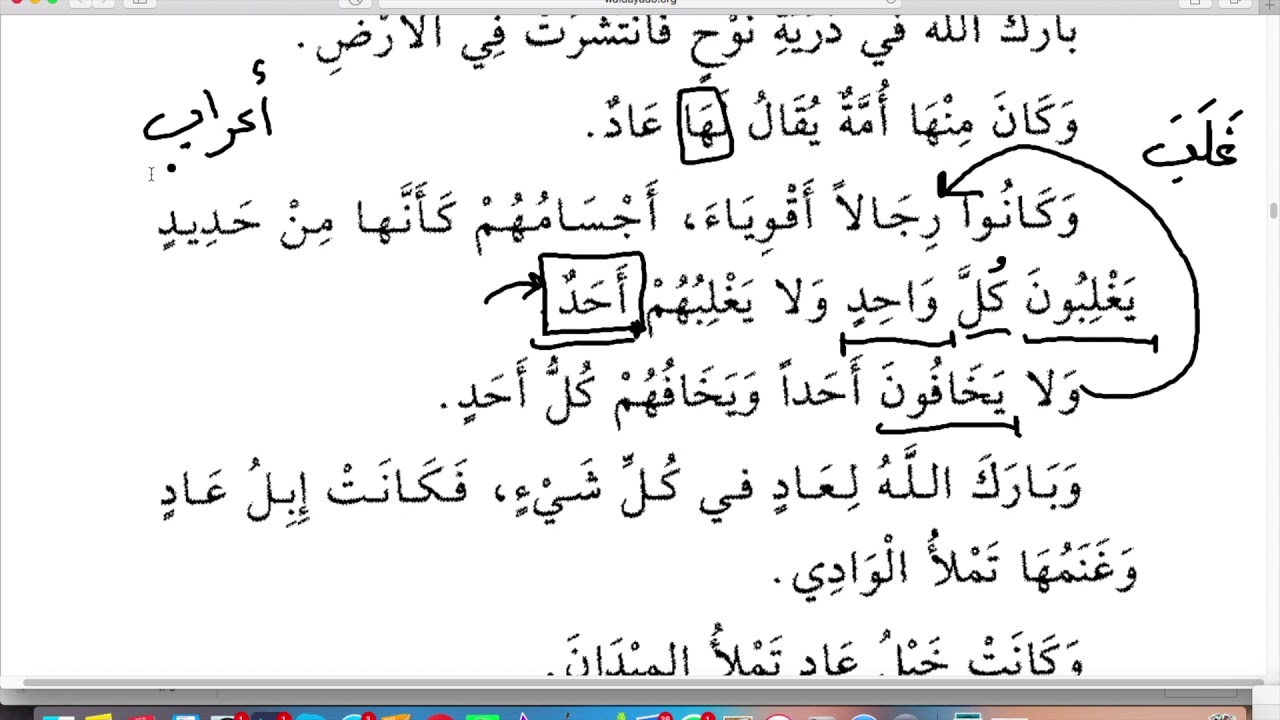 waldayado.org
بارك الله في ذُرِّيَّةِ نُوْحٍ فَانْتَشَرَتْ فِي الأَرْضِ.
أعراب
وَكَانَ مِنْهَا أُمَّةٌ يُقَالُ لَهَا عَادٌ.
غَلَبَ
وَكَانُوا رِجَالاً أَقْوِيَاءَ، أَجْسَامُهُمْ كَأَنَّها مِنْ حَدِيدٍ
يَغْلِبُونَ كُلَّ وَاحِدٍ وَلا يَغْلِبُهُمْ أَحَدٌ
وَلا يَخَافُونَ أَحَداً وَيَخَافُهُمْ كُلُّ أَحَدٍ.
وَبَارَكَ اللَّهُ لِعَادٍ في كُلِّ شَيْءٍ، فَكَانَتْ إِبِلُ عَادٍ
وَغَنَمُهَا تَمْلأُ الْوَادِي.
وَكَانَتْ خَيْلُ عَادٍ تَمْلأُ المِيْدَانَ.